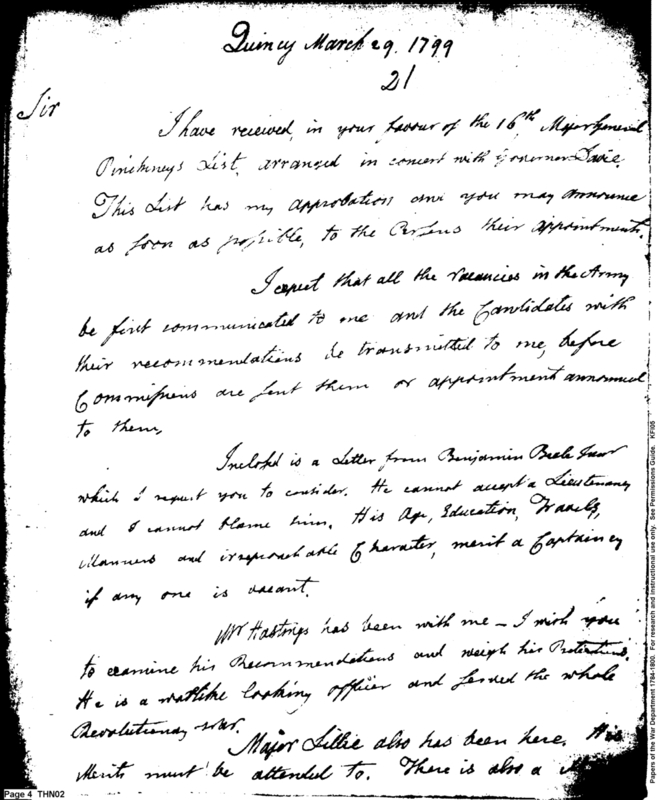 Quincy March 29. 1799
21
Sir
I have received, in your favour of the 16th, Major General
Pinckneys List, arranged in concert with Governor Davie.
This List has my approbation and you may announce
as soon as possible, to the Persons their appointments.
I expect that all the vacancies in the Army
be first communicated to me and the Candidates with
their recommendations be transmitted to me, before
Commissions are sent them or appointment announced
to them,
Inclosed is a Letter from Benjamin Beale Junr
which I request you to consider. He cannot accept a Lieutenancy
and I cannot blame him. His Age, Education, Travels,
Manners and irreproachable Character, merit a Captaincy
if any one is vacant.
Mr Hastings has been with me – I wish you
to examine his Recommendations and weigh his Pretentions.
He is a warlike looking officer and served the whole
Revolutionary war.
Major Lillie also has been here. His
Merits must be attended to. There is also a
Page 4 THN02
Papers of the War Department 1784-1800. For research and instructional use only. See Permissions Guide. KFI05